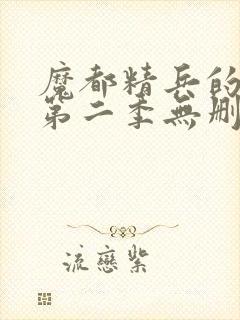 魔都精兵的
第二季無刪
流戀紫